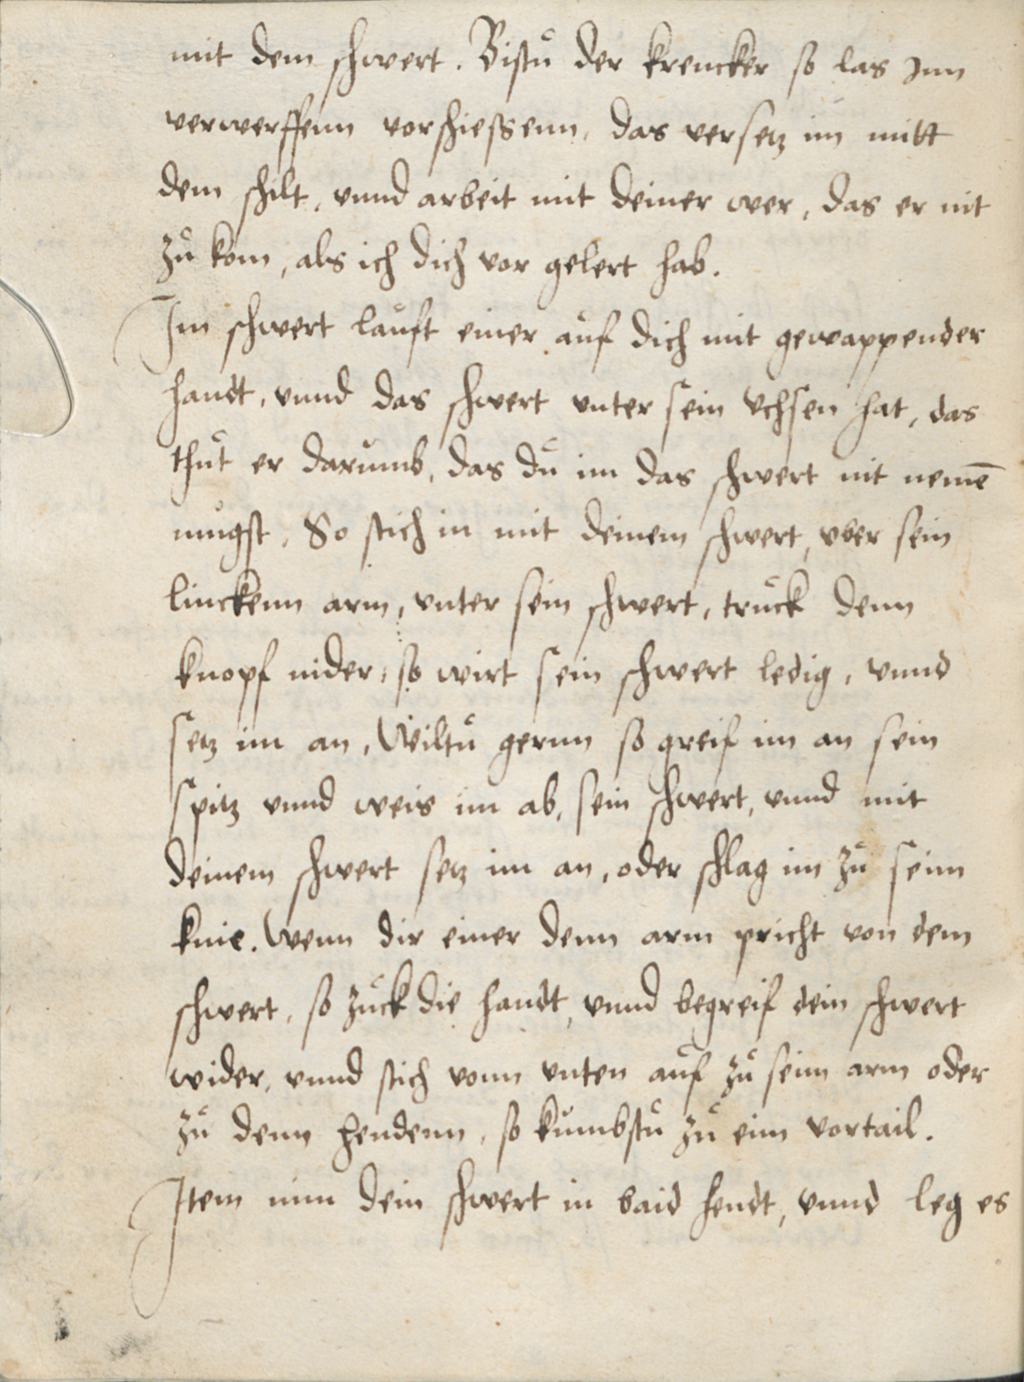 mit dem schwert. Bistů der krencker so las Jnn
verwerffenn vorschiessenn, das versetz im mitt
dem schilt, vnnd arbeit mit deiner wer, das er nit
zů kom, als ich dich vor gelert hab.
Jm schwert laůft einer aůf dich mit gewappender
handt, vnnd das schwert vnter sein Vchsen hat, das
thůt er darůmb, das dů im das schwert nit nemē
mugst. So stich in mit deinem schwert, vber sein
linckenn arm, vnter sein schwert, trůck denn
knopf nider, so wirt sein schwert ledig, vnnd
setz im an, Wiltů gernn so greif im an sein
spitz vnnd weis im ab, sein schwert, vnnd mit
deinem schwert setz im an, oder schlag im zů seim
knie. Wenn dir einer denn arm pricht von dem
schwert, so zůck die handt, vnnd begreif dein schwert
wider, vnnd stich vonn vnten aůf zů seim arm oder
zů denn hendenn, so kůmbstů zů eim vortail.
Jtem nim dein schwert in baid hendt, vnnd leg es